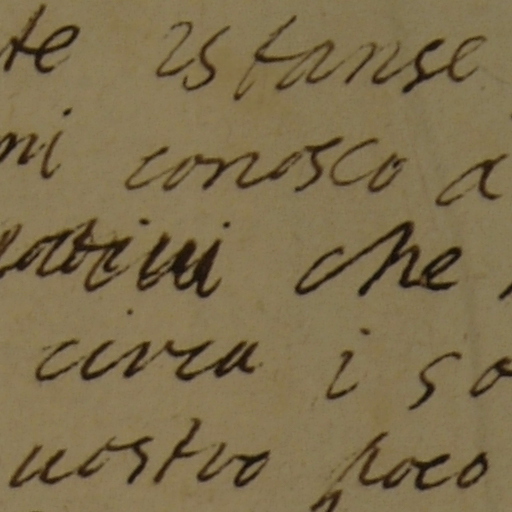 te istanse
mi conosco a
che
circa i so
nostro poco